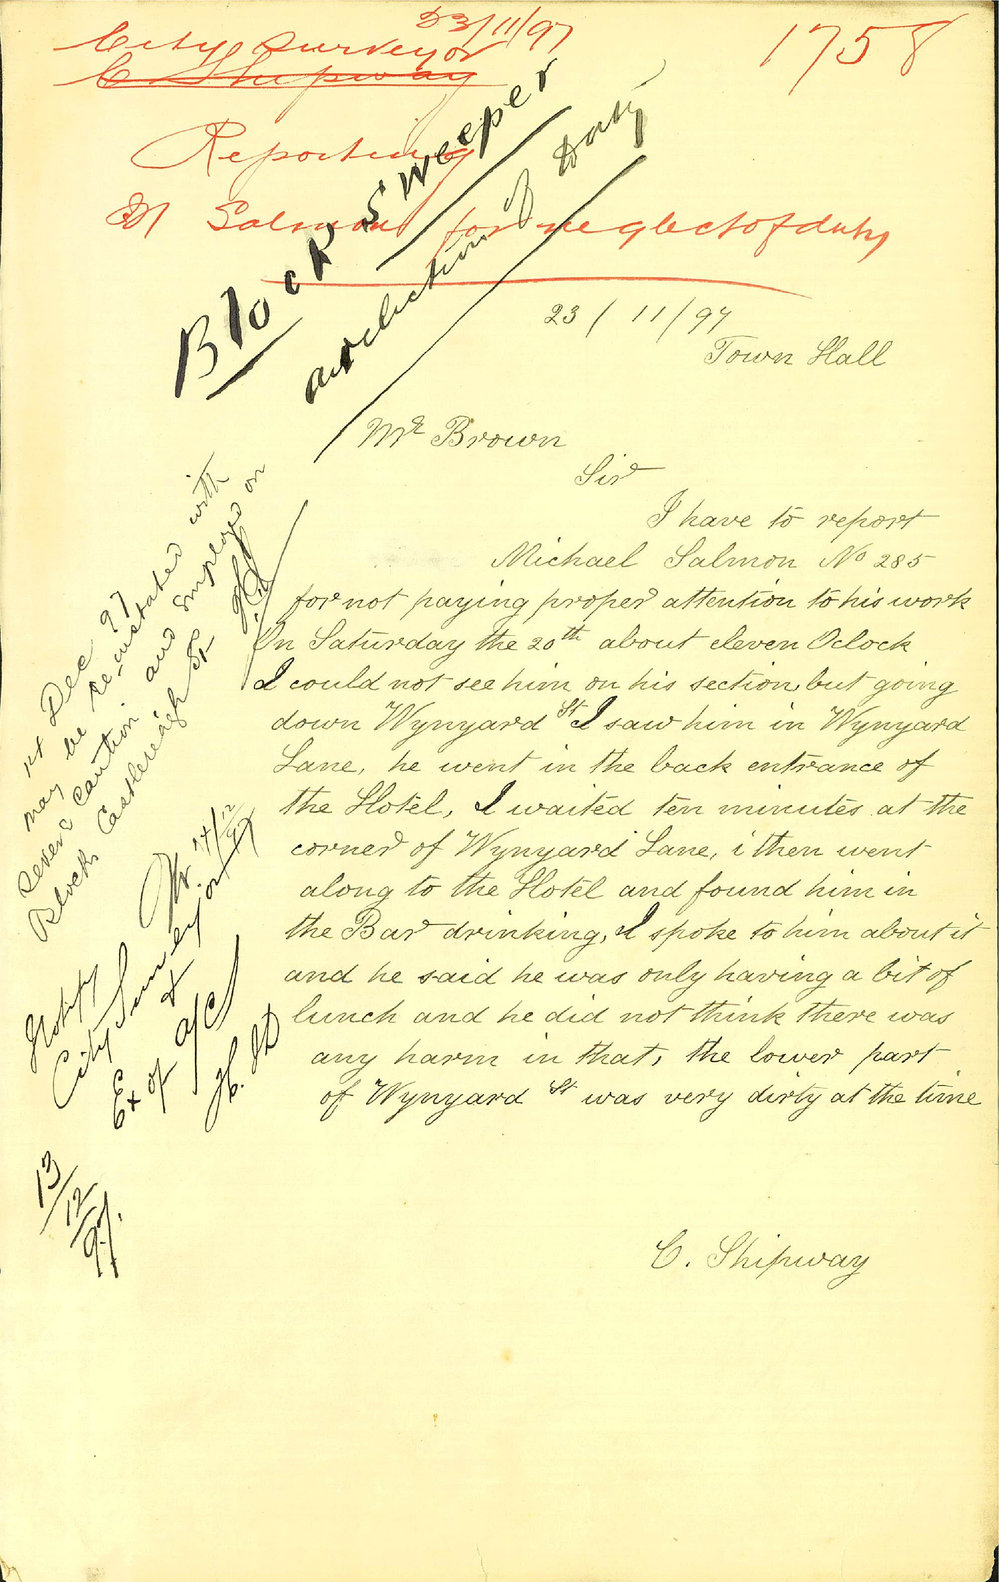 23/11/97
1758
City Surveyor
C Shipway
Reporting
M Salmon for neglect of duty
Block Sweeper
of Duty
23/11/97
Town Hall
Mr Brown
Sir
I have to report
Michael Salmon No 285
for not paying proper attention to his work
On Saturday the 20th about eleven Oclock
I could not see him on his section, but going
down Wynyard St I saw him in Wynyard
Lane, he went in the back entrance of
the Hotel, I waited ten minutes at the
corner of Wynyard Lane, i then went
along to the Hotel and found him in
the Bar drinking, I spoke to him about it
and he said he was only having a bit of
lunch and he did not think there was
any harm in that, the lower part
of Wynyard St was very dirty at the time
C. Shipway
14 Dec 97
may be re-instated with
severe caution and employed on
Blocks Castlereagh St
14/12/97
Notify
City Surveyor
&
Ex of a/c
13/12/97.